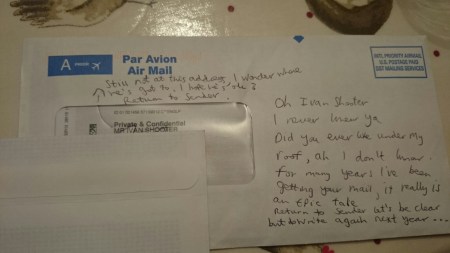 A
Par Avion
Air Mail
INTL PRIORITY AIRMAIL
U.S. POSTAGE PAID
GST MAILING SERVICES
Still not at this address. I wonder where
he's got to. I hope he's ok?
Return to Sender.
Private & Confidential
MR IVAN SHOOTER
Oh Ivan Shooter
I never knew ya
Did you ever live under my
roof, ah I don't know.
For many years I've been
getting your mail, it really is
an Epic tale
Return to Sender let's be clear
but do write again next year....